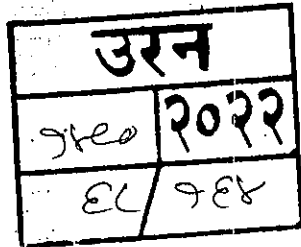 उरन
१४९० २०२२
६८/१६४